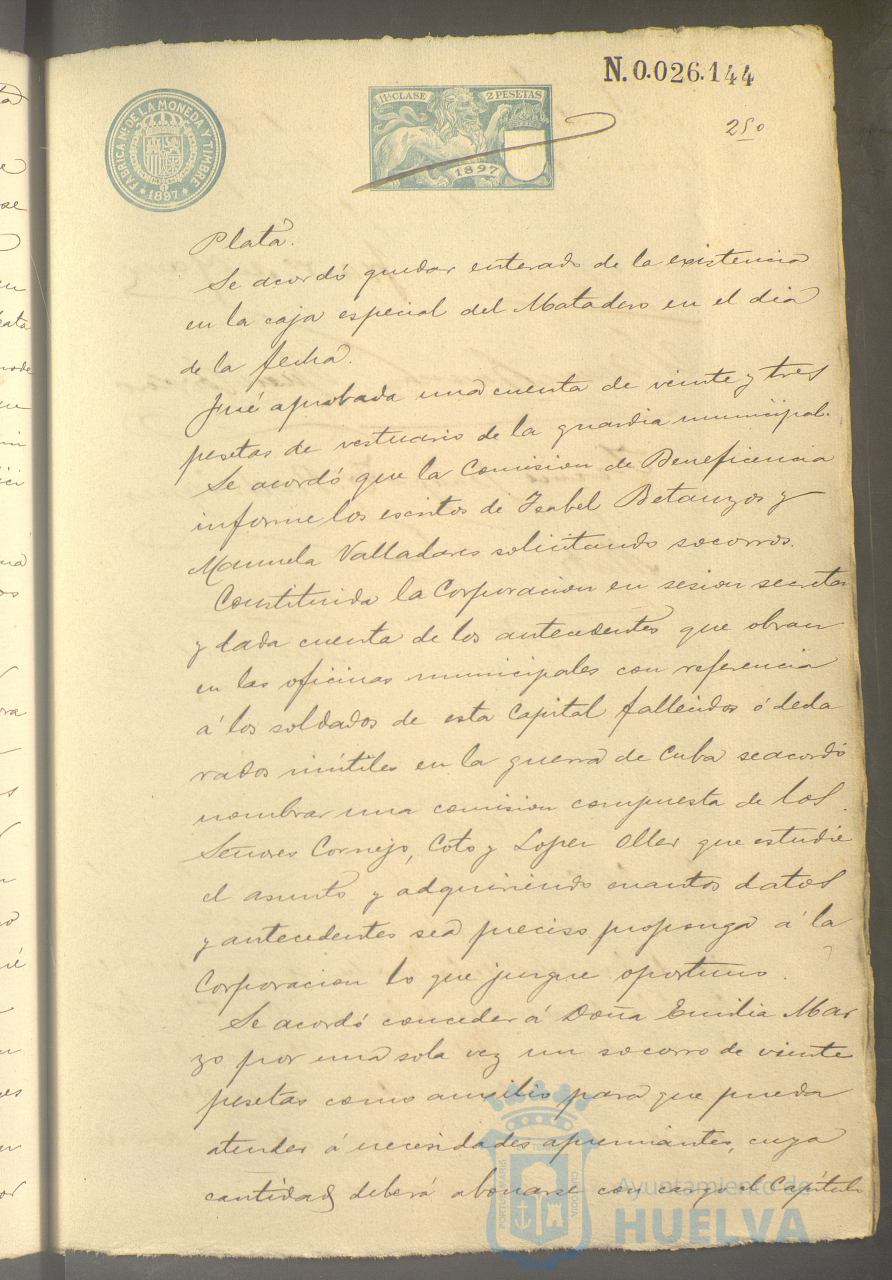 N. 0.026.144
FABRICA Nl. DE LA MONEDA Y TIMBRE
1897
11ª CLASE 2 PESETAS
1897
250
Plata.
Se acordó quedar enterado de la existencia
en la caja especial del Matadero en el dia
de la fecha.
Fué aprobada una cuenta de veinte y tres
pesetas de vestuario de la guardia municipal.
Se acordó que la Comision de Beneficencia
informe los escritos de Isabel Betanzos y
Manuela Valladares solicitando socorros.
Constituida la Corporacion en sesion secreta
y dada cuenta de los antecedentes que obran
en las oficinas municipales con referencia
á los soldados de esta Capital fallecidos ó decla
rados inútiles en la guerra de Cuba se acordó
nombrar una comision compuesta de los
Señores Cornejo, Coto y Lopez Oller que estudie
el asunto y adquiriendo cuantos datos
y antecedentes sea preciso proponga á la
Corporacion lo que juzgue oportuno.
Se acordó conceder á Doña Emilia Mar
zo por una sola vez un socorro de viente
pesetas como ausilio para que pueda
atender á necesidades apremiantes, cuya
cantidad deberá abonarse con cargo al Capítulo
Ayuntamiento de
HUELVA